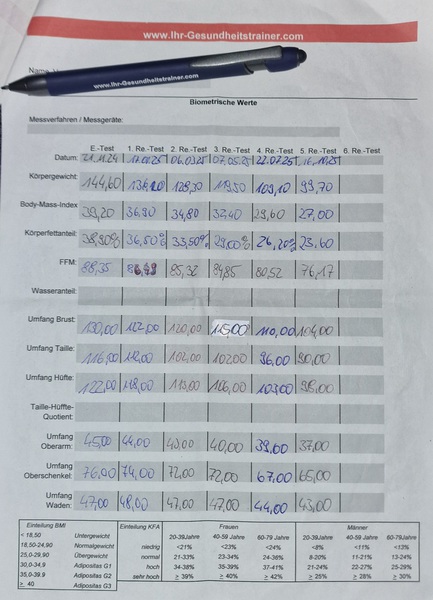 www.Ihr-Gesundheitstrainer.com
www.Ihr-Gesundheitstrainer.com
Biometrische Werte
Messverfahren / Messgeräte:
E.-Test 1. Re.-Test 2. Re.-Test 3. Re.-Test 4. Re.-Test 5. Re.-Test 6. Re.-Test
Datum: 21.11.24 06.03.25 07.05.25 22.07.25 16.10.25
Körpergewicht: 144,60 136,20 119,50 109,10 99,70
Body-Mass-Index 39,20 36,90 34,80 32,40 29,60 27,00
Körperfettanteil: 38,90% 36,50% 33,50% 29,00% 26,20% 23,60
FFM: 88,35 85,32 84,85 80,52 76,17
Wasseranteil:
Umfang Brust: 130,00 122,00 120,00 115,00 110,00 104,00
Umfang Taille: 116,00 112,00 102,00 102,00 96,00 90,00
Umfang Hüfte: 122,00 118,00 113,00 106,00 103,00 98,00
Taille-Hüffte-
Quotient:
Umfang
Oberarm: 45,00 44,00 43,00 40,00 39,00 37,00
Umfang
Oberschenkel: 76,00 74,00 72,00 72,00 67,00 65,00
Umfang
Waden: 47,00 48,00 47,00 47,00 44,00 43,00
Einteilung BMI Einteilung KFA Frauen Männer
20-39Jahre 40-59 Jahre 60-79 Jahre 20-39Jahre 40-59 Jahre 60-79Jahre
< 18,50 Untergewicht
18,50-24,90 Normalgewicht niedrig <21% <23% <24% <8% <11% <13%
25,0-29,90 Übergewicht normal 21-33% 23-34% 24-36% 8-20% 11-21% 13-24%
30,0-34,9 Adipositas G1 hoch 34-38% 35-39% 37-41% 21-24% 22-27% 25-29%
35,0-39,9 Adipositas G2 sehr hoch ≥ 39% ≥ 40% ≥ 42% ≥ 25% ≥ 28% ≥ 30%
≥ 40 Adipositas G3